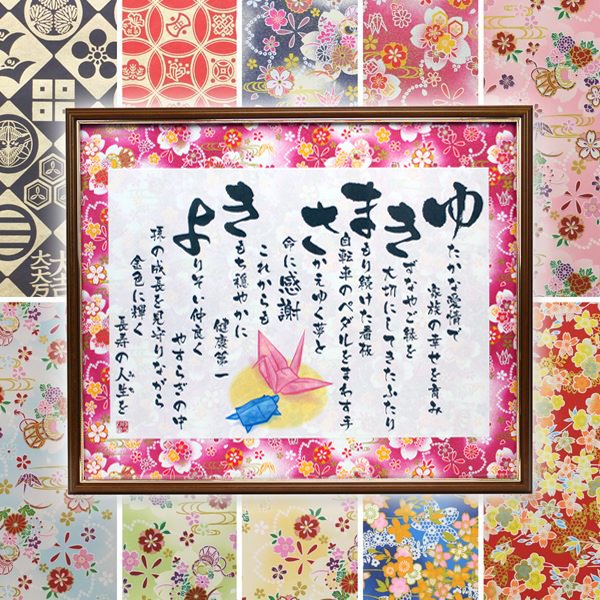 ゆたかな愛情で
家族の幸せを育み
きずなやご縁を
大切にしてきたふたり
まもり続けた看板
自転車のペダルをまわす手
さかえゆく夢と
命に感謝
これからも
きもち穏やかに
健康第一
よりそい仲良く
やすらぎの中
孫の成長を見守りながら
金色に輝く
長寿の人生を